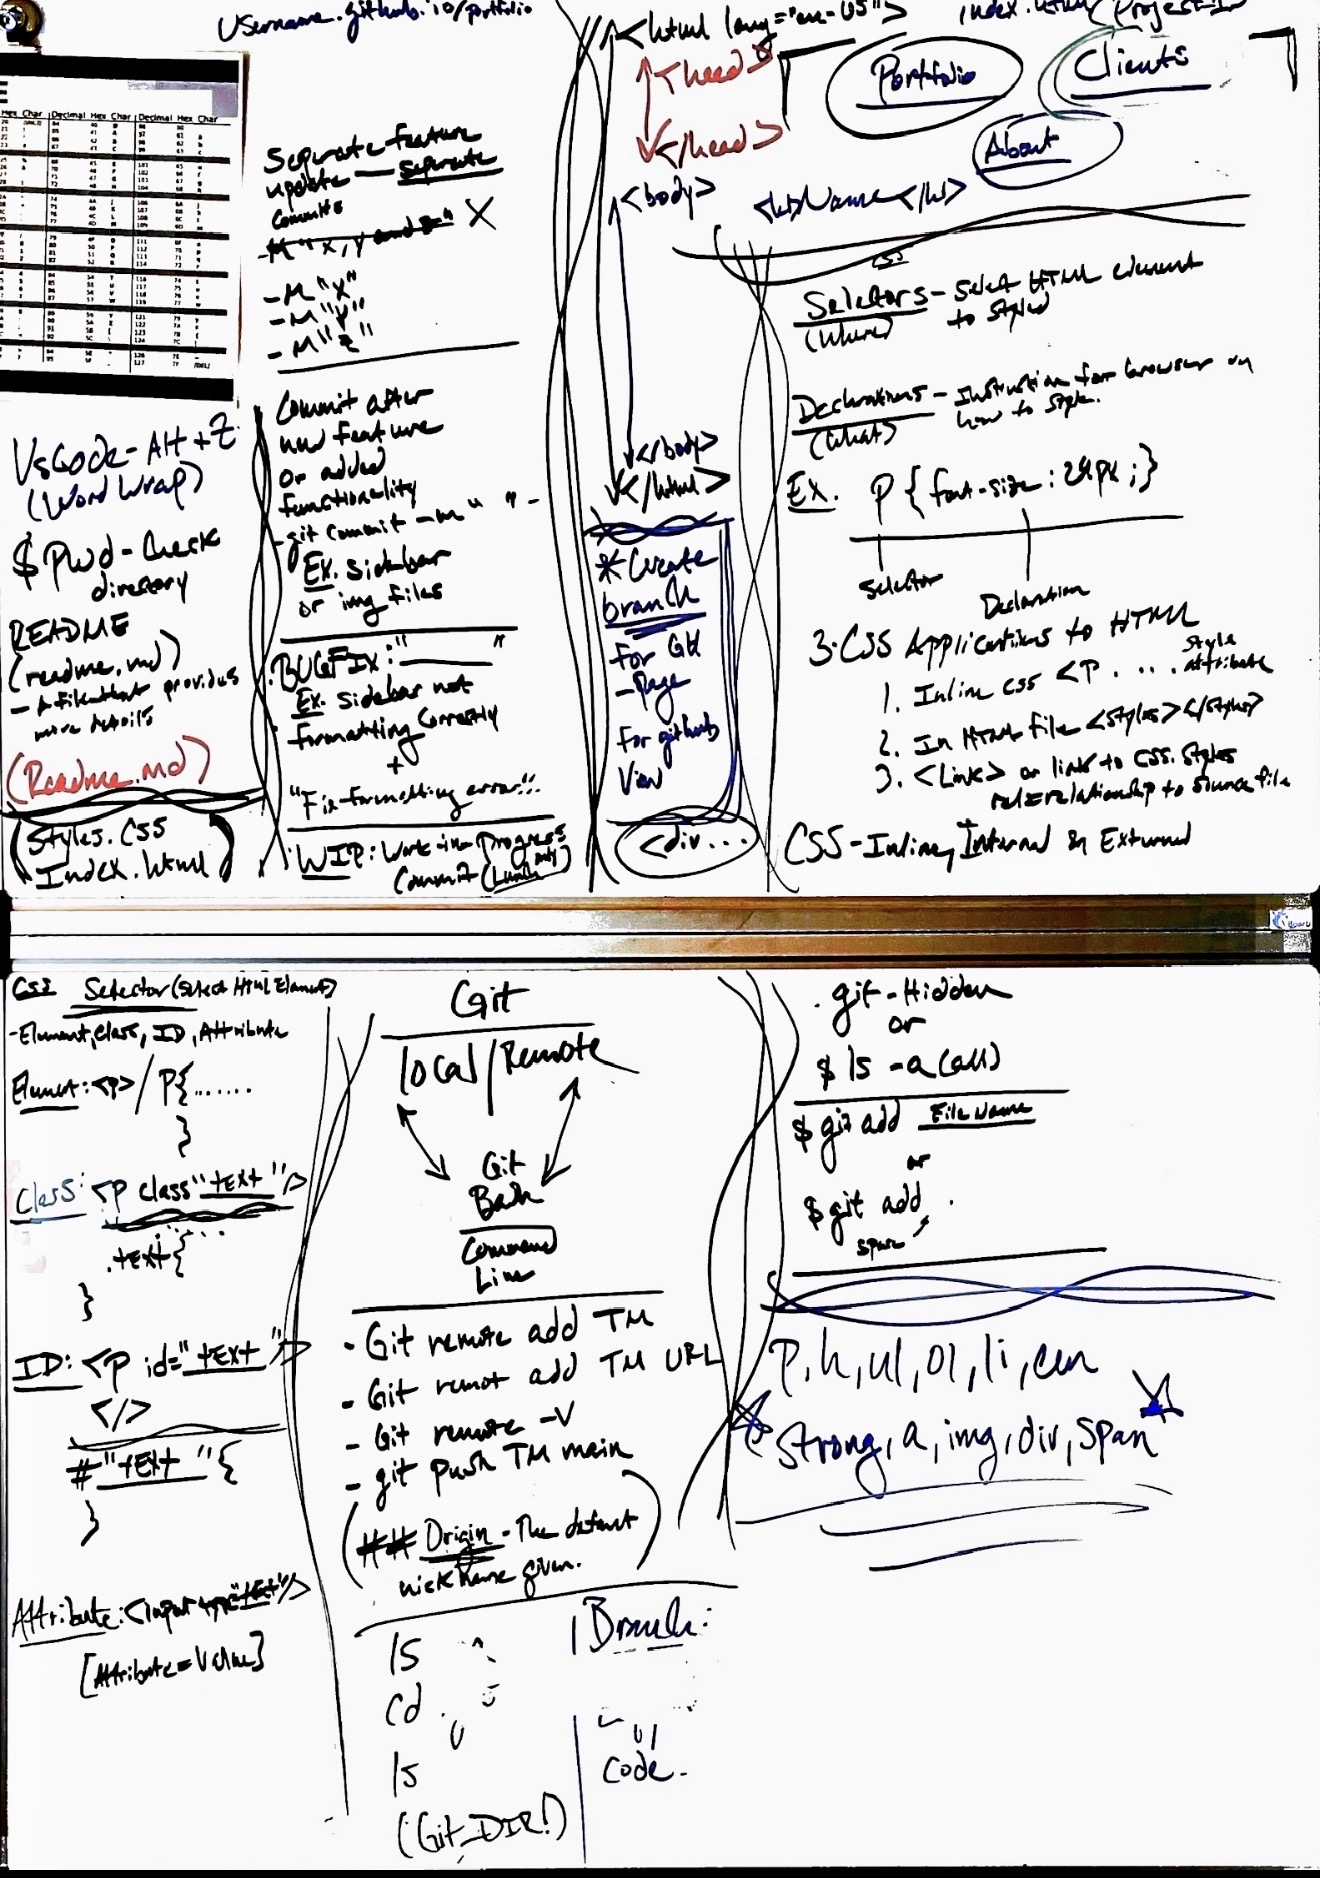 Username.github.io/portfolio
Hex Char Decimal Hex Char Decimal Hex Char
VsCode - Alt + Z
(Word Wrap)
$ Pwd - Check
directory
README
(readme.md)
- A file that provides
more details
(Readme.md)
Styles.CSS
Index.html
Seperate feature
update — seperate
commits
- M "X, Y and Z" X
- M "X"
- M "Y"
- M "Z"
Commit after
new feature
or added
functionality
- git commit -m " " -
Ex. sidebar
or img files
BUGFIX: " "
Ex. Sidebar not
formatting correctly
+
"Fix formatting error!!
WIP: Work-in-Progress
Commit (Lunch only)
<html lang="en-US">
<head>
</head>
<body>
</body>
</html>
*Create
branch
for GH
-Page
for github
View
<div...
index.html
Portfolio
Clients
About
<h1>Name</h1>
CSS
Selectors - Select HTML element
to styled
(Where)
Declarations - Instruction for browser on
how to style.
(What)
Ex. P { font-size: 24px; }
Selector
Declaration
3. CSS Applications to HTML
1. Inline CSS <P . ... style
attribute
2. In HTML file <styles></styles>
3. <Link> or link to CSS. Styles
rel=relationship to source file
CSS - Inline, Internal & External
Board
CSS Selector (Select HTML Element)
- Element, Class, ID, Attribute
Element: <P> / P{......
}
Class: <P class"text"/>
.text{
}
ID: <P id="text"/>
</>
#"text "{
}
Attribute: <input type="text"/>
[Attribute=Value]
Git
local/Remote
Git
Bash
Command
Line
- Git remote add TM
- Git remot add TM URL
- Git remote -V
- git push TM main
(## Origin - The default
nickname given.)
ls
cd .
ls
(Git_DIR!)
Branch:
Code.
.git - Hidden
or
$ ls -a (all)
$ git add File Name
or
$ git add .
space
P, h, ul, ol, li, em
Strong, a, img, div, span